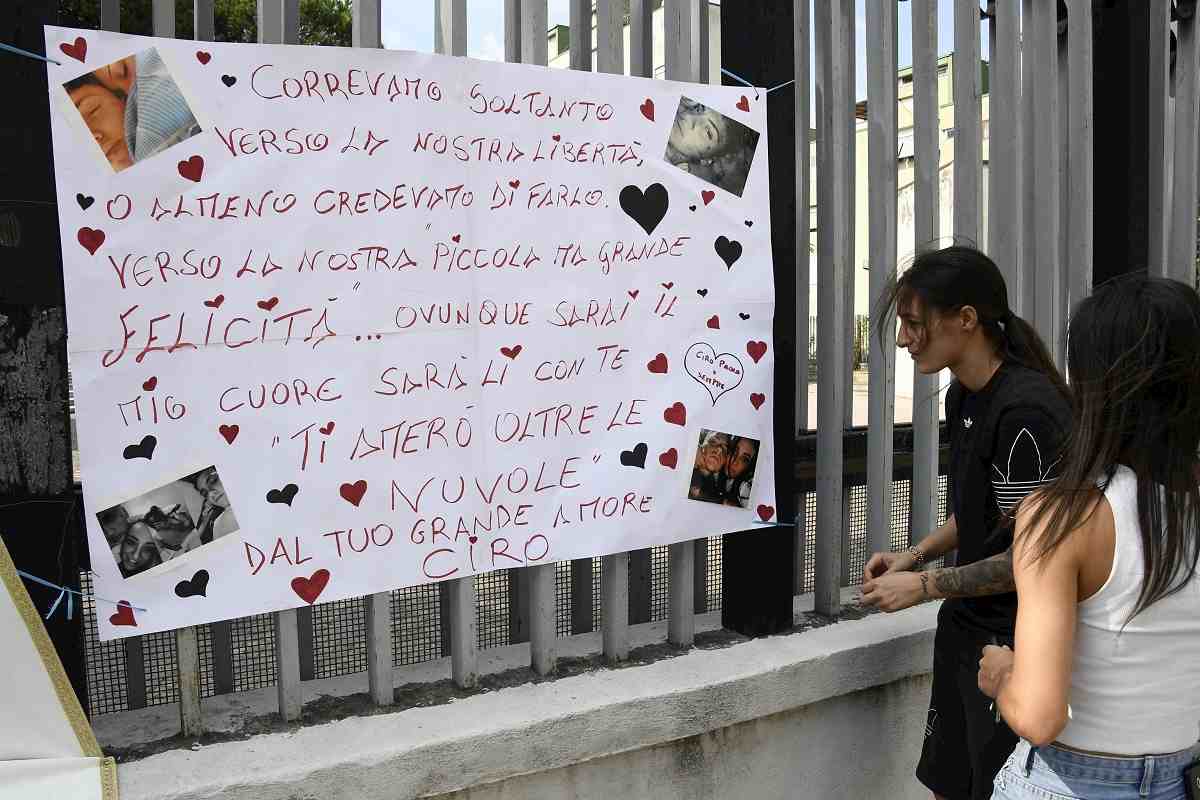 CORREVAMO SOLTANTO
VERSO LA NOSTRA LIBERTÀ,
O ALMENO CREDEVAMO DI FARLO.
VERSO LA NOSTRA "PICCOLA MA GRANDE
FELICITÀ"... OVUNQUE SARAI IL
MIO CUORE SARÀ LÌ CON TE
"TI AMERÒ OLTRE LE
NUVOLE"
DAL TUO GRANDE AMORE
CIRO
CIRO PAOLA
SEMPRE